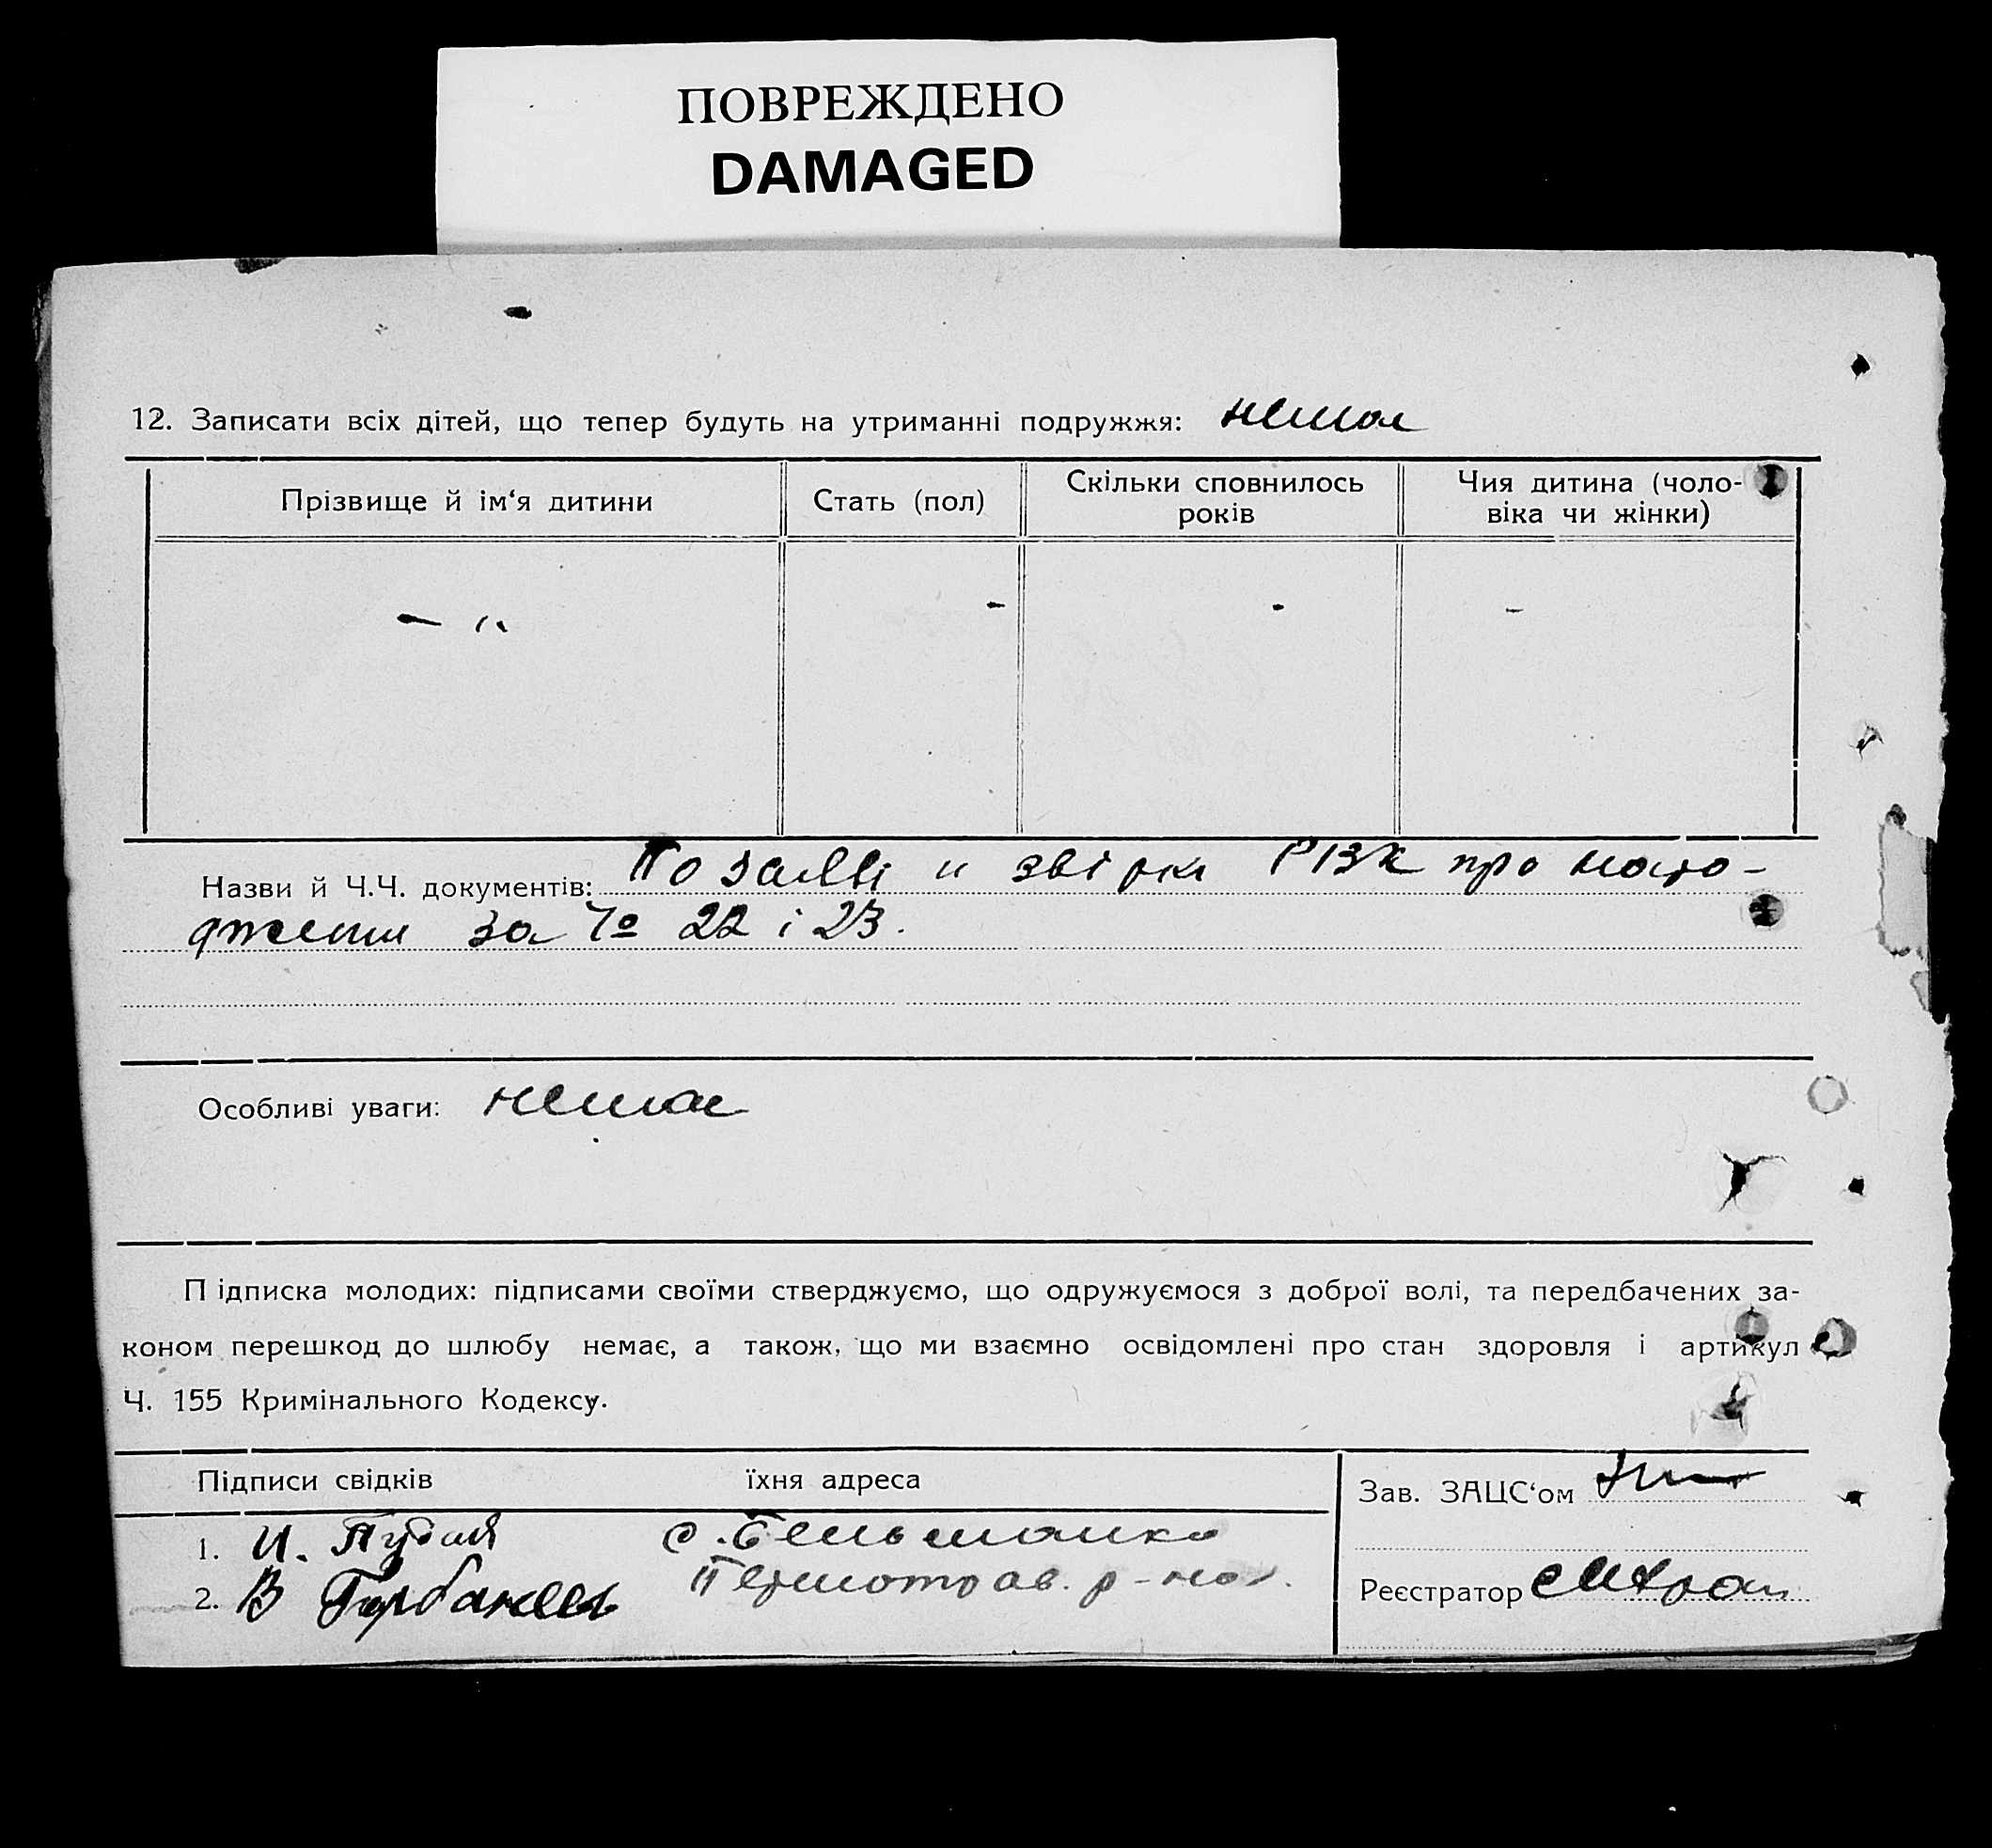 ПОВРЕЖДЕНО
DAMAGED
12. Записати всіх дітей, що тепер будуть на утриманні подружжя: немає
Прізвище й ім‘я дитини
Стать (пол)
Скільки сповнилось
років
Чия дитина (чоло-
віка чи жінки)
– „
-
-
-
Назви й Ч.Ч. документів: По заяві и звірки РВК про народ-
дження за № 22 і 23.
Особливі уваги: немає
Підписка молодих: підписами своїми стверджуємо, що одружуємося з доброї волі, та передбачених за-
коном перешкод до шлюбу немає, а також, що ми взаємно освідомлені про стан здоровля і артикул
Ч. 155 Кримінального Кодексу.
Підписи свідків
їхня адреса
1. И.
с. Бельманка
2. В Горбанёвъ
р-на.
Зав. ЗАЦС‘ом
Реєстратор